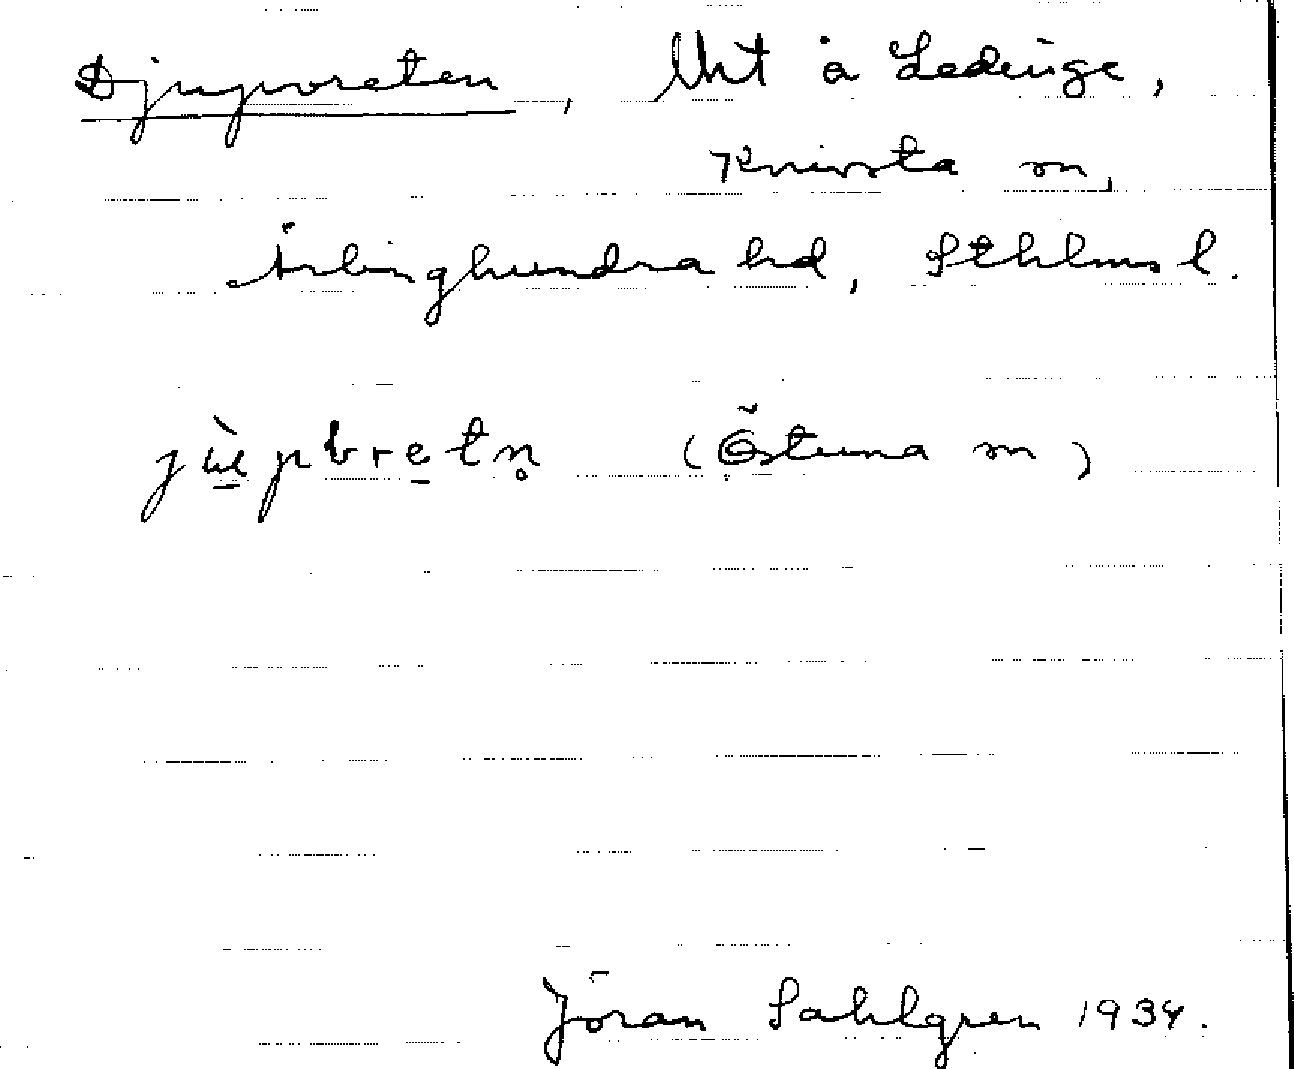 Djupvreten, Uht å Ledinge,
Knivsta sn,
Ärlinghundra hd, Sthlms l.
jùpbretn̥ (Östuna sn)
Jöran Sahlgren 1934.